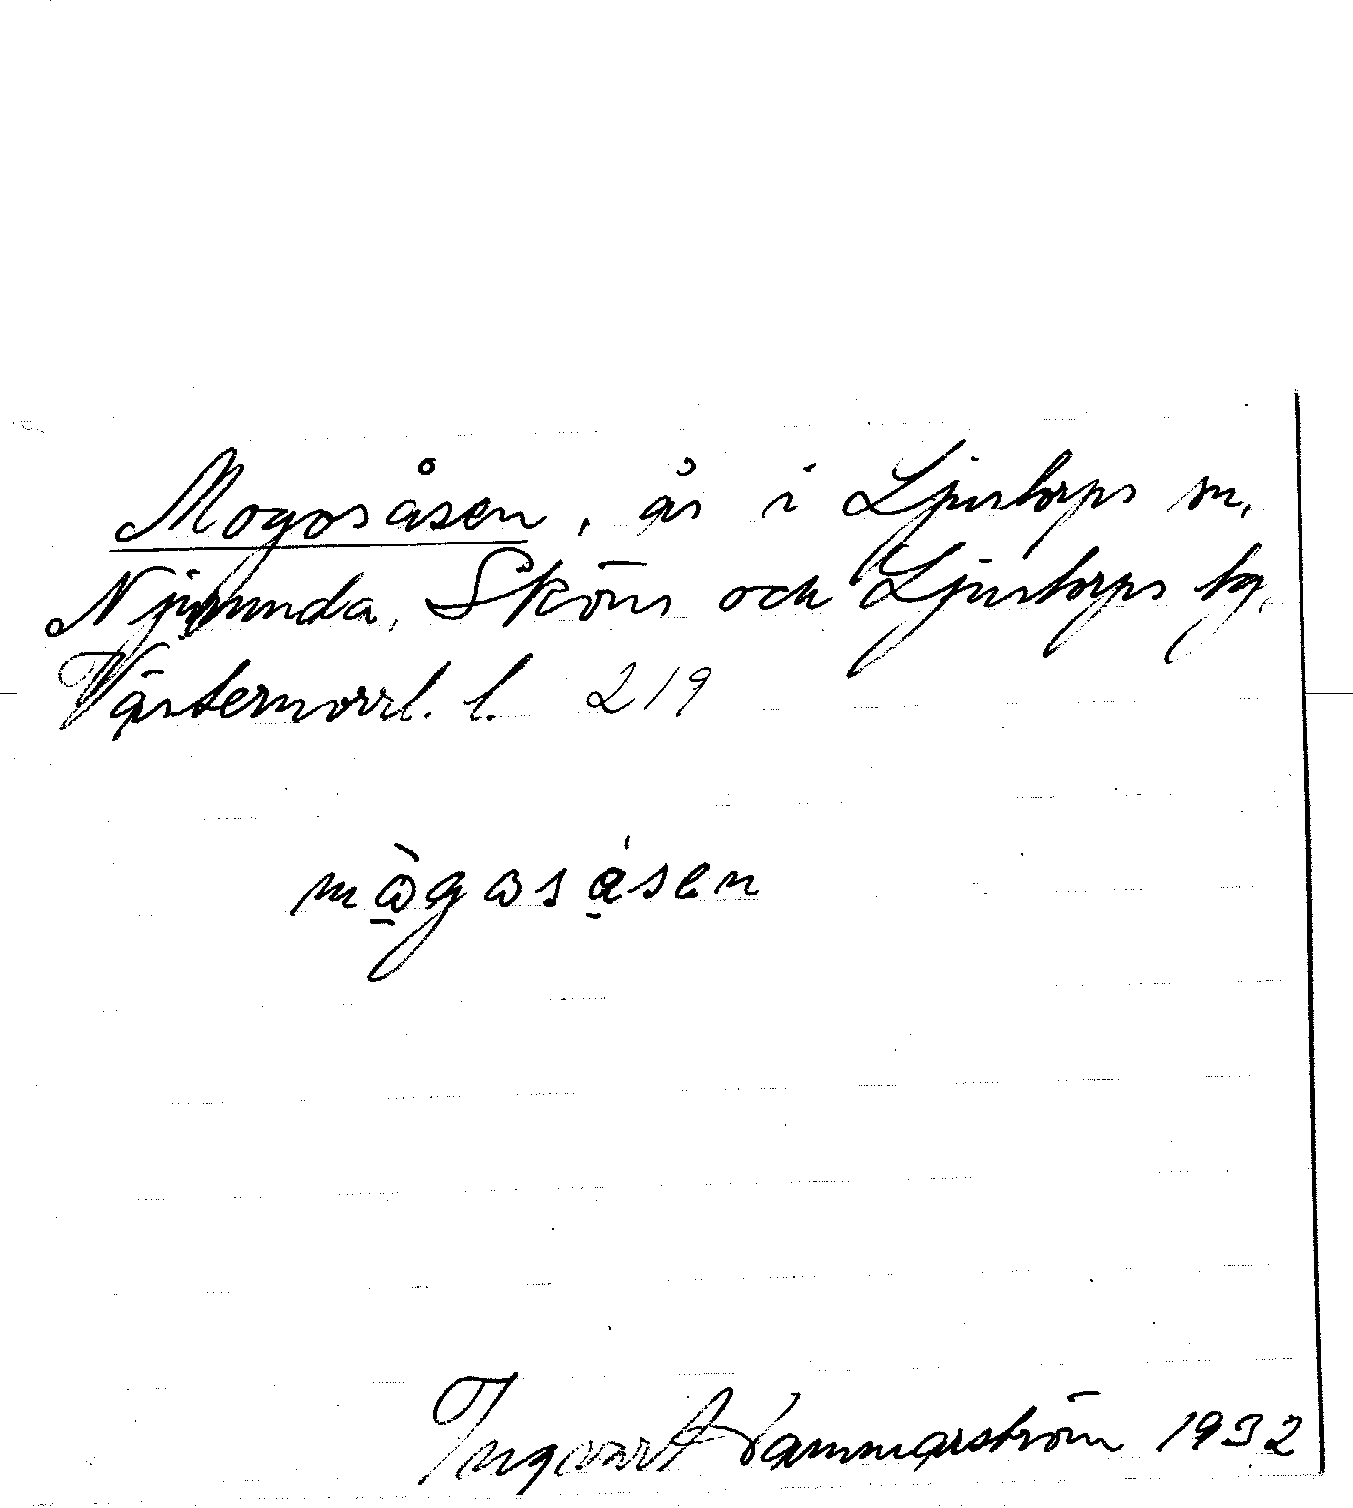 Mogosåsen, ås i Ljustorps sn,
Njurunda, Sköns och Ljustorps tg,
Västernorrl. l. 219
mògosåsen
Ingvart Hammarström 1932